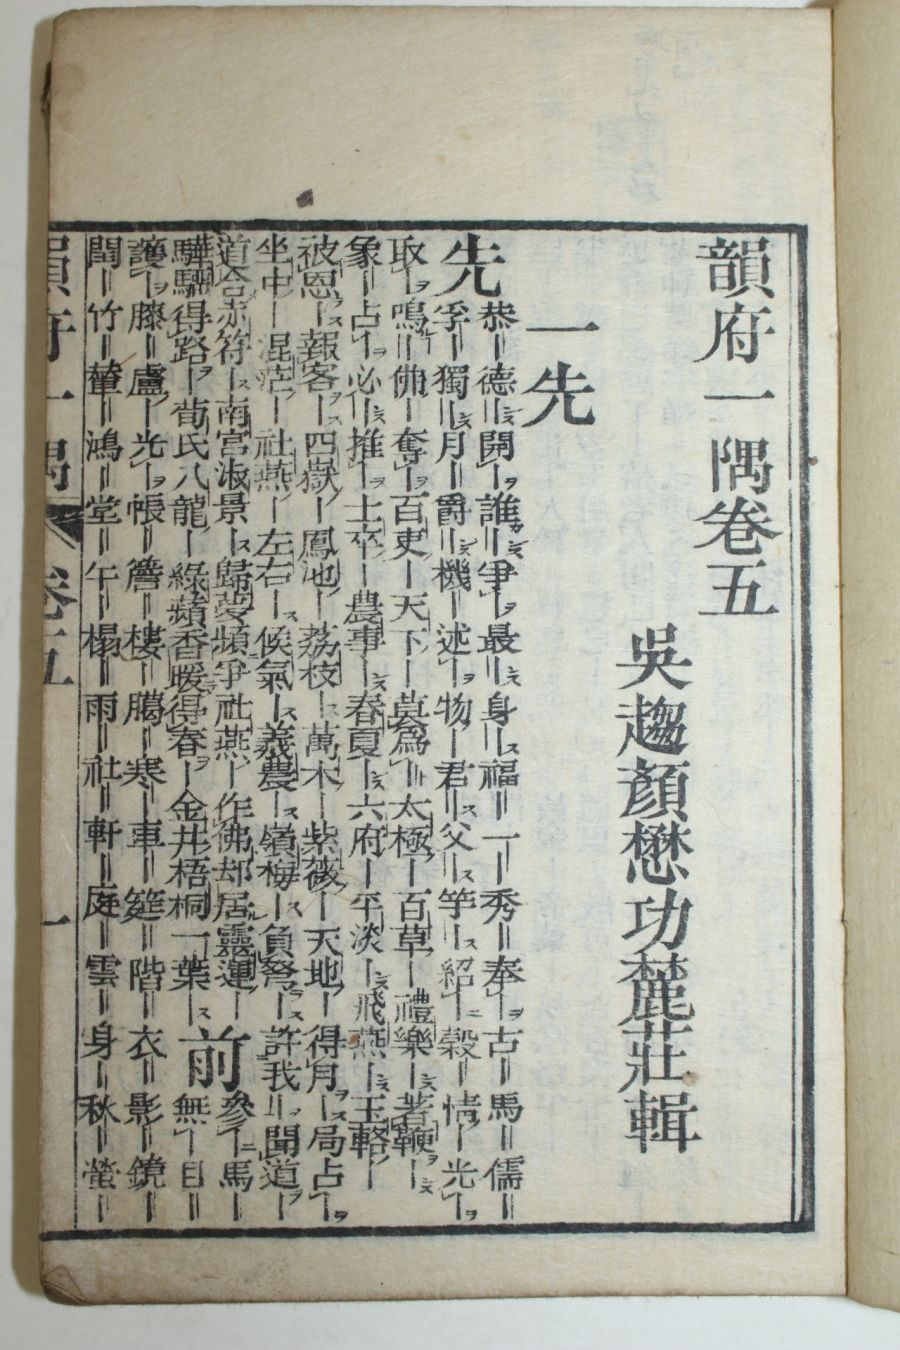 韻府一隅卷五
吳趨顏懋功麓莊輯
一先
先恭｜德‖開｜誰‖爭｜最｜身｜福‖一‖秀‖奉｜古｜馬‖儒｜
孚｜獨‖月｜爵‖機｜述｜物｜君｜父‖竽‖紹｜穀｜情｜光｜
取｜鳴‖佛｜奪｜百吏｜天下｜莫爲｜太極｜百草｜禮樂｜著鞭｜
象｜占｜必｜推｜士卒｜農事｜春夏｜六府｜平淡｜飛燕｜玉輅｜
彼恩｜報客｜四嶽｜鳳池｜荔枝｜萬木｜紫薇｜天地｜得月｜局占｜
坐中｜混茫｜社燕｜左右｜候氣｜義農｜嶺梅｜負弩｜許我｜聞道｜
道合赤符｜南宮淑景｜歸夢頻爭社燕｜作佛却居靈運｜前參｜馬｜
驊騮得路｜荀氏八龍｜綠蘋香暖得春｜金井梧桐一葉｜無｜目‖
護｜膝｜盧｜光｜帳｜簷｜樓｜臈｜寒｜車｜筵｜階｜衣‖影｜鏡｜
閏｜竹‖輦｜鴻｜堂｜午｜榻｜雨｜社｜軒｜庭｜雲｜身｜秋｜螢｜
韻府一隅 卷五 一